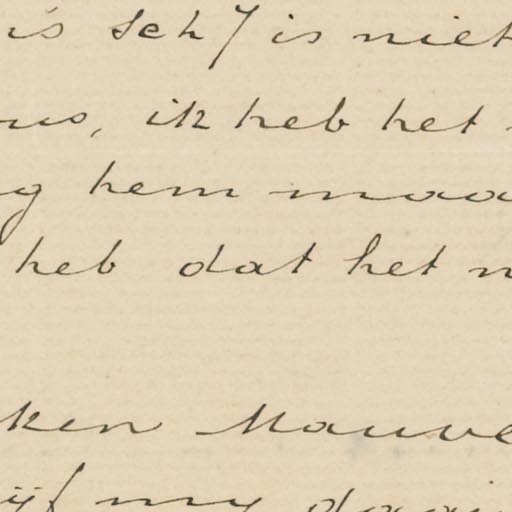 is Sch / is niet
us, ik heb het
g hem maa
heb dat het n
ken Mauve
ijf my d